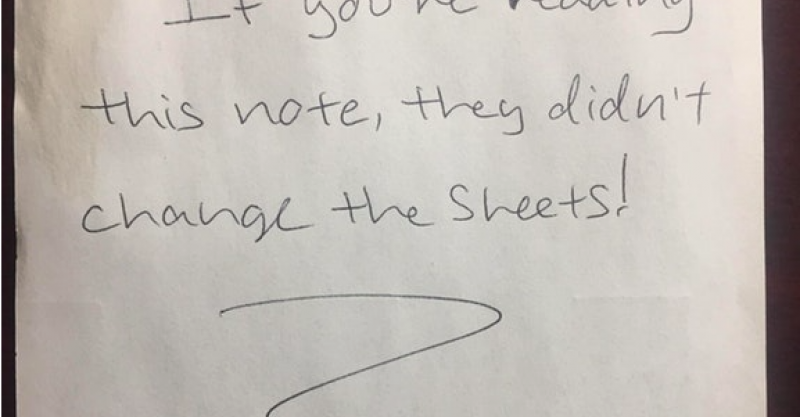 If you're reading
this note, they didn't
change the sheets!